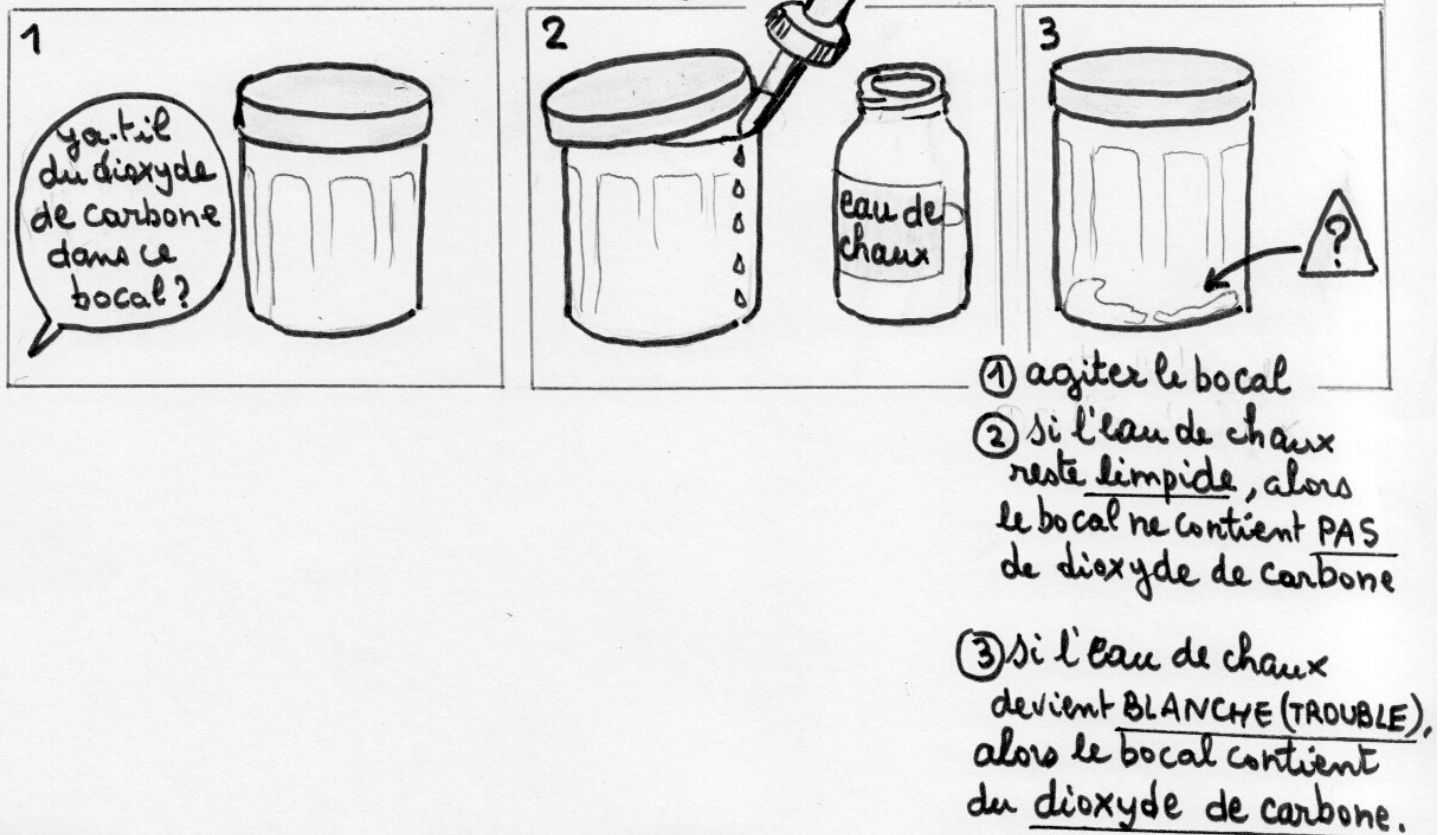 1
ya-t-il
du dioxyde
de carbone
dans ce
bocal?
2
eau de
chaux
3
?
① agiter le bocal
② si l'eau de chaux
reste limpide, alors
le bocal ne contient PAS
de dioxyde de carbone
③ si l'eau de chaux
devient BLANCHE (TROUBLE),
alors le bocal contient
du dioxyde de carbone.